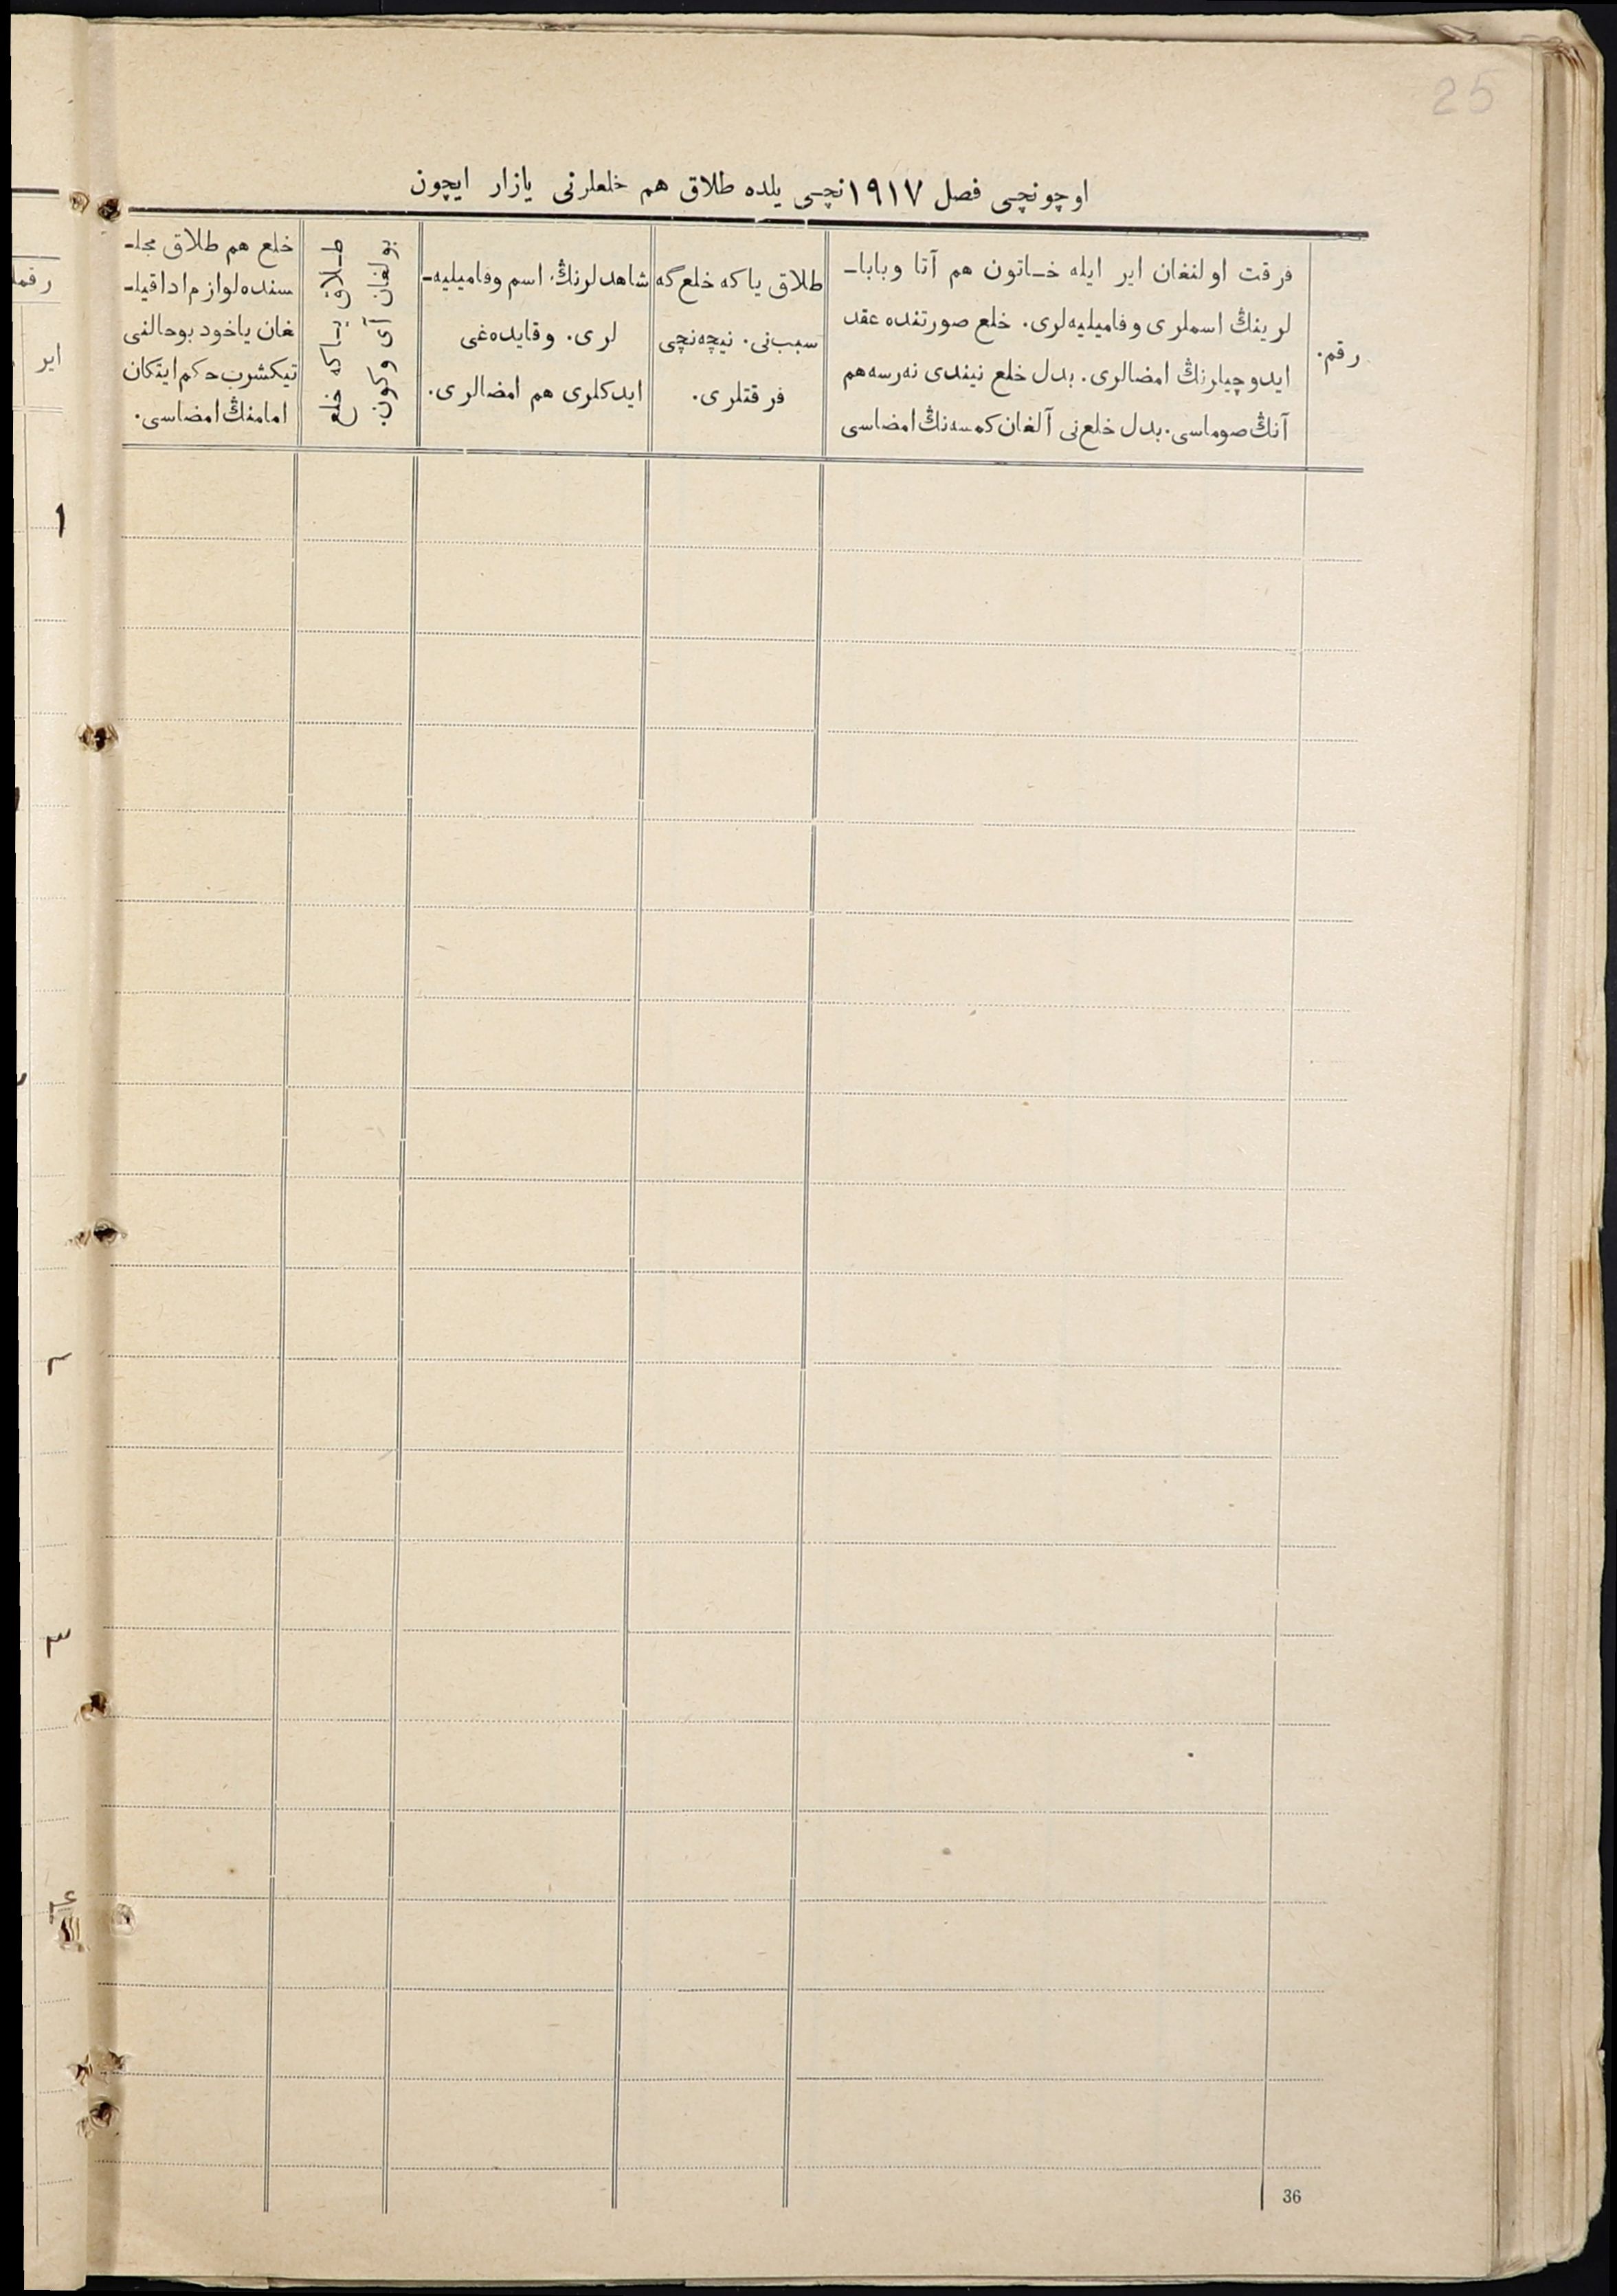 25
اوچونچی فصل ١٩١٧نچی یلده طلاق هم خلعلرنی یازار ایچون
رقم.
فرقت اولنغان ایر ایله خـاتون هم آتا وبابا‌ـ
لرینڭ اسملری وفامیلیه‌لری. خلع صورتنده عقد
ایدوچیلرنڭ امضالری. بدل خلع نیندی نه‌رسه هم
آنڭ صوماسی. بدل خلع‌نی آلغان کمسه‌نڭ امضاسی
طلاق یاکه خلع گه
سبب نی. نیچه‌نچی
فرقتلری.
شاهدلرنڭ، اسم وفامیلیه‌ـ
لری. وقایده‌غی
ایدکلری هم امضالری.
طـلاق یـاکه خلع
بولغان آی وکون.
خلع هم طلاق مجلـ
سنده لوازم ادا قیلـ
غان یاخود بوحالنی
تیکشرب حکم ایتکان
امامنڭ امضاسی.
ایر
١
٢
٣
٤
36